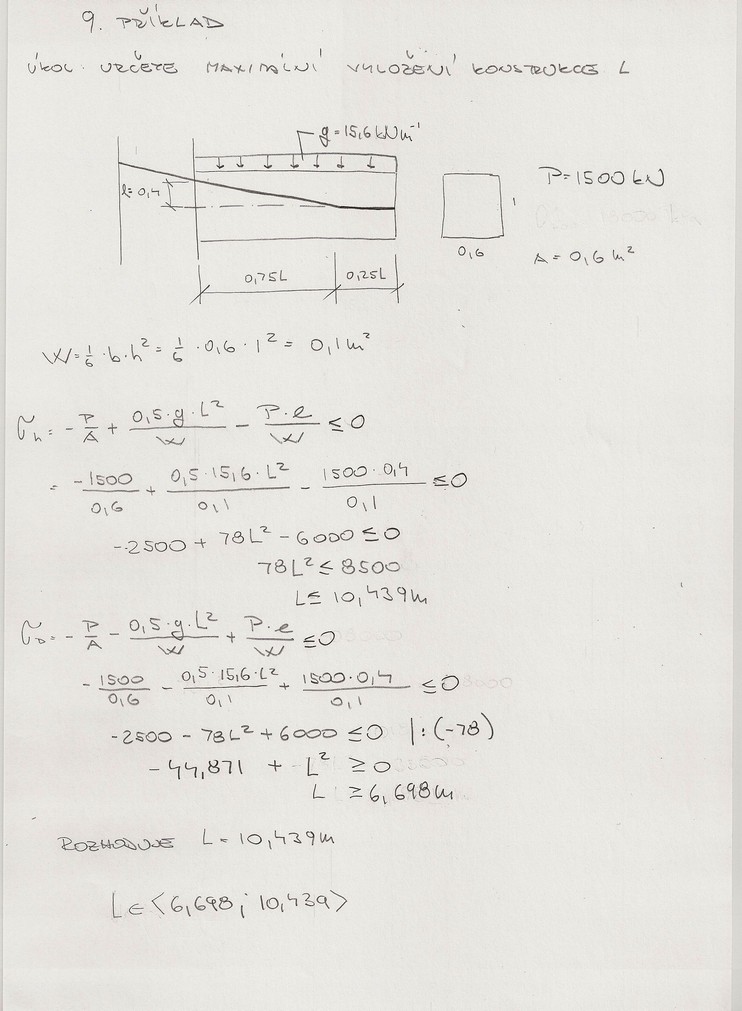 9. PŘÍKLAD
ÚKOL: URČETE MAXIMÁLNÍ VYLOŽENÍ KONSTRUKCE L
g = 15,6 kNm⁻¹
P = 1500 kN
l = 0,4
1
0,6
A = 0,6 m²
0,75L 0,25L
W = 1/6 · b · h² = 1/6 · 0,6 · 1² = 0,1 m²
σh = - P/A + 0,5·g·L²/W - P·e/W ≤ 0
= -1500/0,6 + 0,5·15,6·L²/0,1 - 1500·0,4/0,1 ≤ 0
-2500 + 78L² - 6000 ≤ 0
78L² ≤ 8500
L ≤ 10,439 m
σD = - P/A - 0,5·g·L²/W + P·e/W ≤ 0
- 1500/0,6 - 0,5·15,6·L²/0,1 + 1500·0,4/0,1 ≤ 0
-2500 - 78L² + 6000 ≤ 0 |:(-78)
-44,871 + L² ≥ 0
L ≥ 6,698 m
ROZHODUJE L = 10,439 m
L ∈ <6,698; 10,439>